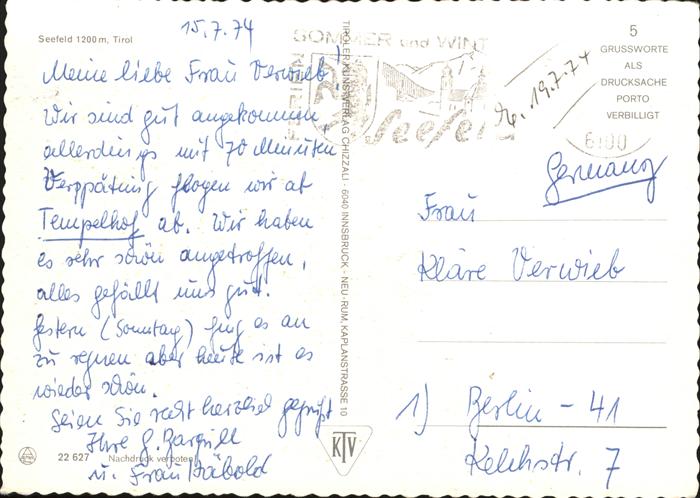 15.7.74
Seefeld 1200 m, Tirol
Meine liebe Frau Verwieb!
Wir sind gut angekommen,
allerdings mit 70 Minuten
Verspätung flogen wir ab
Tempelhof ab. Wir haben
es sehr schön angetroffen,
alles gefällt uns gut.
Gestern (Sonntag) fing es an
zu regnen aber heute ist es
wieder schön.
Seien Sie recht herzlich gegrüßt
Ihre G.
u. Frau
22 627 Nachdruck verboten
TIROLER KUNSTVERLAG CHIZZALI · 6040 INNSBRUCK - NEU-RUM, KAPLANSTRASSE 10
KTV
SOMMER und WINT
FERIEN
Seefeld
19.7.74
5
GRUSSWORTE
ALS
DRUCKSACHE
PORTO
VERBILLIGT
6100
Germany
Frau
Kläre Verwieb
1) Berlin - 41
Kelchstr. 7